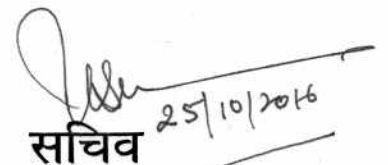 25/10/2016
सचिव